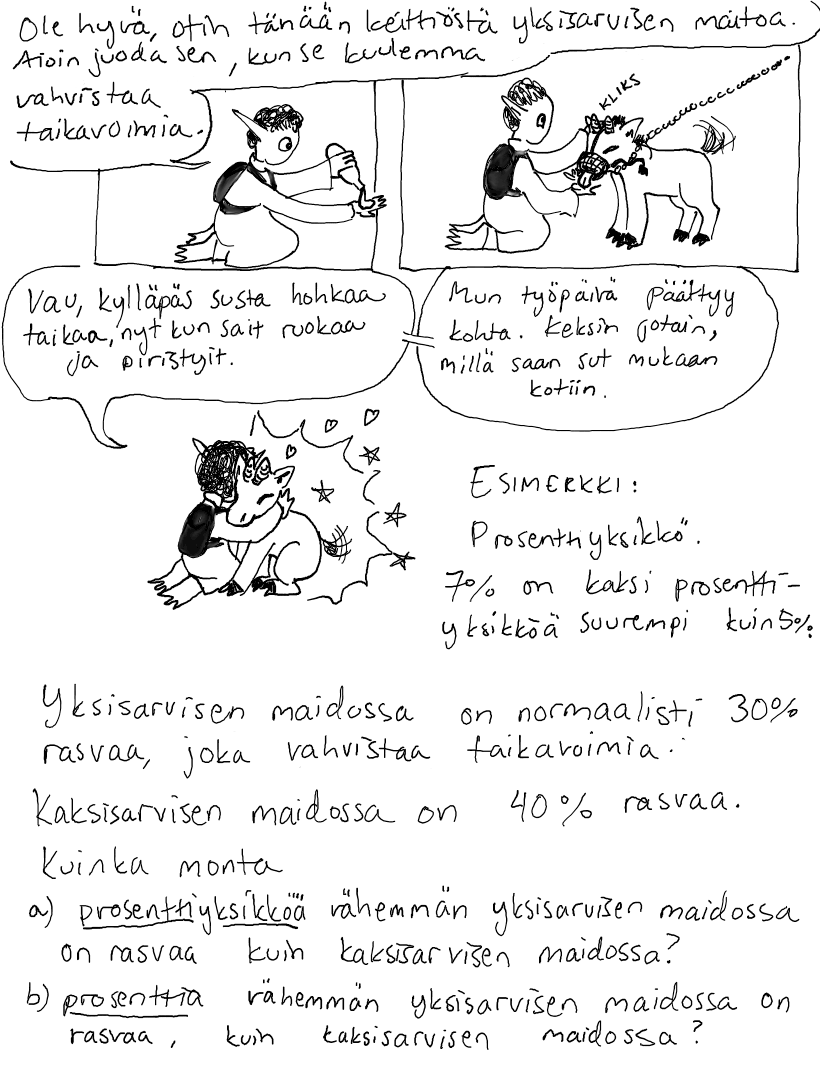 Ole hyvä, otin tänään keittiöstä yksisarvisen maitoa.
Aioin juoda sen, kun se kuulemma
vahvistaa
taikavoimia.
KLIKS
Vau, kylläpäs susta hohkaa
taikaa, nyt kun sait ruokaa
ja piristyit.
Mun työpäivä päättyy
kohta. Keksin jotain,
millä saan sut mukaan
kotiin.
ESIMERKKI:
Prosenttiyksikkö.
7% on kaksi prosentti-
yksikköä suurempi kuin 5%.
Yksisarvisen maidossa on normaalisti 30%
rasvaa, joka vahvistaa taikavoimia.
Kaksisarvisen maidossa on 40% rasvaa.
Kuinka monta
a) prosenttiyksikköä vähemmän yksisarvisen maidossa
on rasvaa kuin kaksisarvisen maidossa?
b) prosenttia vähemmän yksisarvisen maidossa on
rasvaa, kuin kaksisarvisen maidossa?